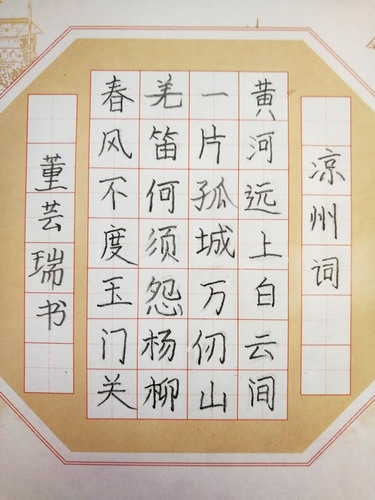 凉州词
黄河远上白云间
一片孤城万仞山
羌笛何须怨杨柳
春风不度玉门关
董芸瑞书